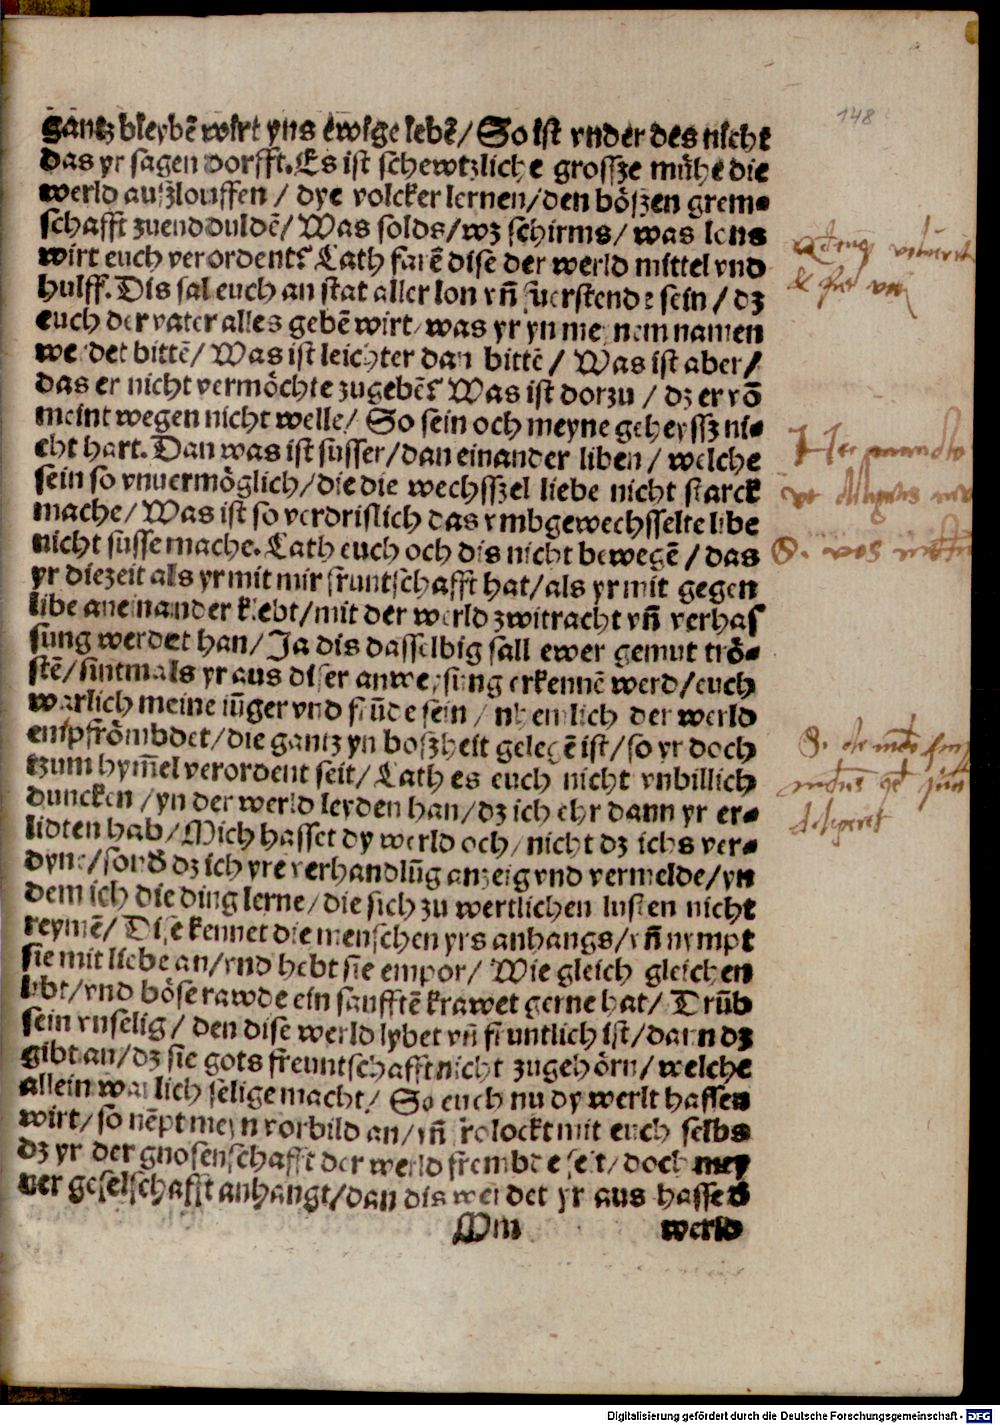 148
gantz bleybē wirt yns ewige lebē/ So ist vnder des nicht
das yr sagen dorfft. Es ist schewtzliche grossze mühe die
werld außlouffen / dye volcker lernen/ den bößzen grem⸗
schafft zuend duldē/ Was solds/ wz schirms/ was lons
wirt euch verordent? Lath farē dise der werld mittel vnd
hulff. Dis sal euch an stat aller lon vn̄ sein / dz
euch der vater alles gebē wirt/ was yr yn meynem namen
werdet bittē/ Was ist leichter dan bittē / Was ist aber/
das er nicht vermöchte zugebē? Was ist dorzu / dz er vō
meint wegen nicht welle/ So sein och meyne geheyssz ni⸗
cht hart. Dan was ist susser/ dan einander liben / welche
sein so vnuermöglich/ die die wechsszel liebe nicht starck
mache/ Was ist so verdrislich das vmbgewechsselte libe
nicht susse mache. Lath euch och dis nicht bewegē / das
yr diezeit als yr mit mir fruntschafft hat/ als yr mit gegen
libe aneinander klebt/ mit der werld zwitracht vn̄ verhas
sung werdet han/ Ja dis dasselbig sall ewer gemut trö⸗
stē/ sintmals yr aus diser anweysung erkennē werd/ euch
warlich meine iūger vnd frūde sein / nhemlich der werld
entpfrömbdet/ die gantz yn boßheit gelegē ist/ so yr doch
tzum hym̄el verordent seit/ Lath es euch nicht vnbillich
duncken / yn der werld leyden han/ dz ich ehr dann yr er⸗
lidten hab/ Mich hasset dy werld och/ nicht dz ichs ver⸗
dyne/ sond dz ich yre verhandlūg anzeig vnd vermelde/ yn
dem ich die ding lerne/ die sich zu wertlichen lusten nicht
reymē/ Dise kennet die menschen yrs anhangs/ vn̄ nympt
sie mit liebe an/ vnd hebt sie empor/ Wie gleich gleichen
libt/ vnd böse rawde ein saufftē krawet gerne hat/ Drūb
sein vnselig/ den dise werld lybet vn̄ fruntlich ist/ dann dz
gibt an/ dz sie gots freuntschafft nicht zugehörn/ welche
allein warlich selige macht/ So euch nu dy werlt hassen
wirt/ so nēpt meyn vorbild an/ vn̄ frolockt mit euch selbs
dz yr der gnosenschafft der werld frembde seit/ doch mey
ner geselschafft anhangt/ dan dis werdet yr aus hasse d
Mm werld
Digitalisierung gefördert durch die Deutsche Forschungsgemeinschaft - DFG